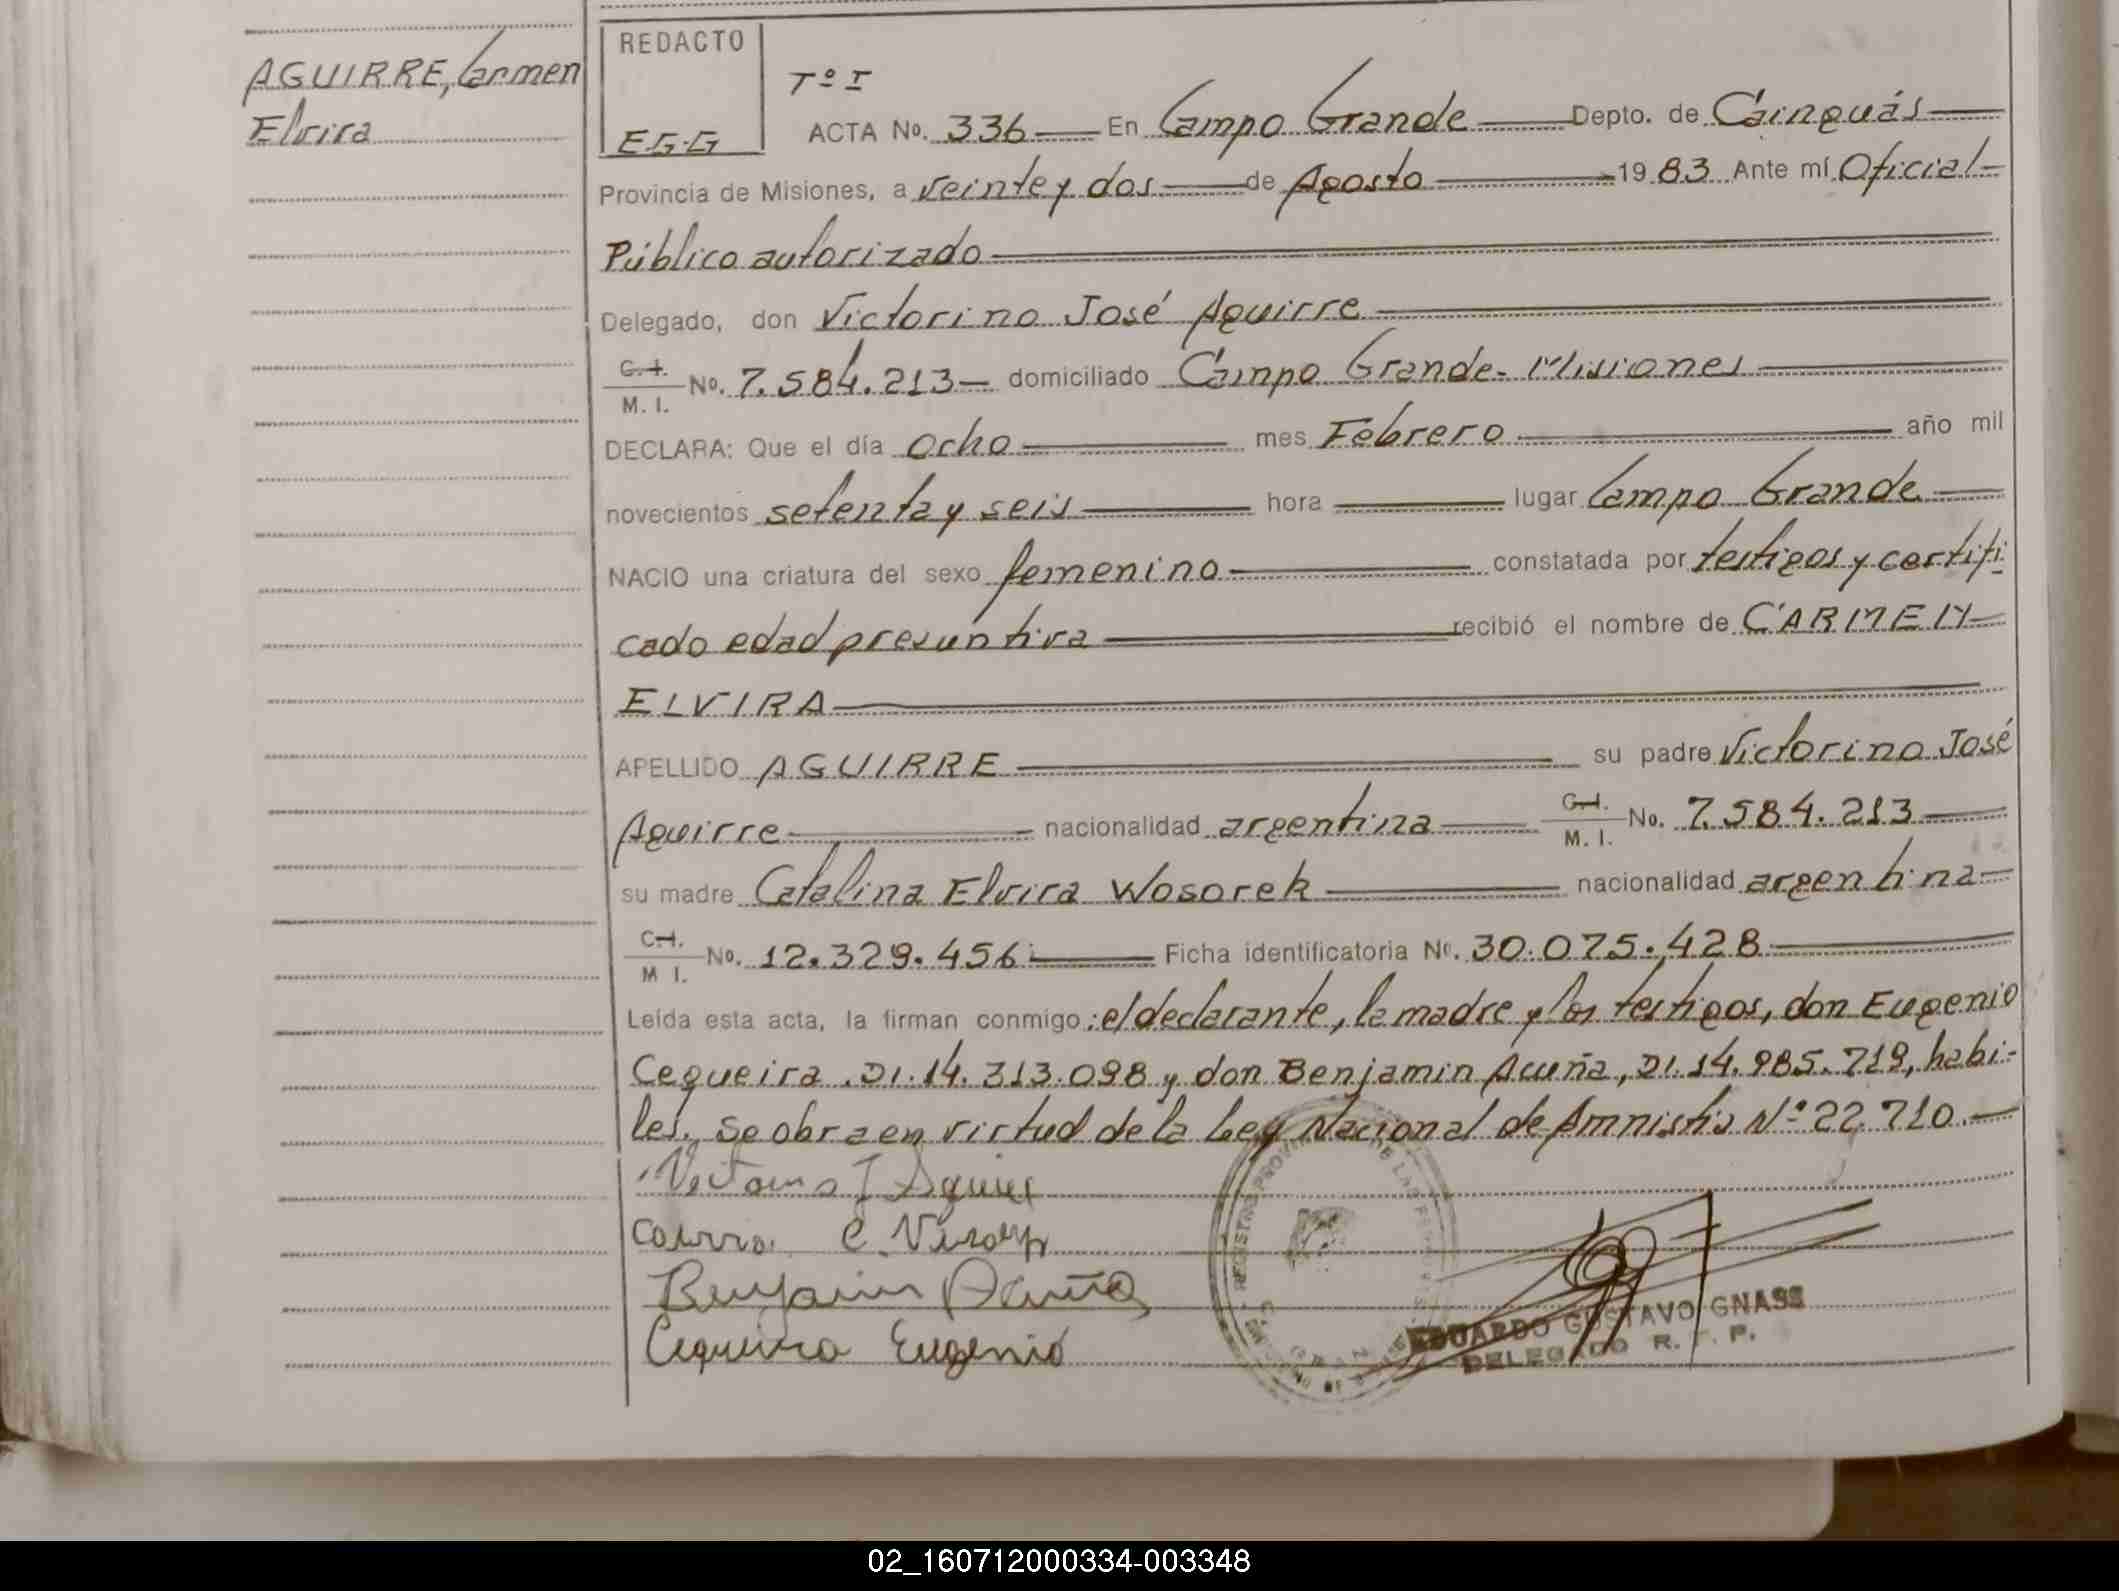 AGUIRRE, Carmen
Elvira
REDACTO
E.G.G
Tº I
ACTA No. 336 En Campo Grande Depto. de Cainguás
Provincia de Misiones, a veinte y dos de Agosto 1983 Ante mí Oficial
Público autorizado
Delegado, don Victorino José Aguirre
C.I.
M. I. No. 7.584.213 domiciliado Campo Grande - Misiones
DECLARA: Que el día ocho mes Febrero año mil
novecientos setenta y seis hora lugar Campo Grande
NACIO una criatura del sexo femenino constatada por testigos y certifi
cado edad presuntiva recibió el nombre de CARMEN
ELVIRA
APELLIDO AGUIRRE su padre Victorino José
Aguirre nacionalidad argentina C.I. M. I. No. 7.584.213
su madre Catalina Elvira Wosorek nacionalidad argentina
C.I.
M I. No. 12.329.456 Ficha identificatoria No. 30.075.428
Leída esta acta, la firman conmigo: el declarante, la madre y los testigos, don Eugenio
Cequeira, DI. 14.313.098 y don Benjamin Acuña, DI. 14.985.719, habi-
les. Se obra en virtud de la Ley Nacional de Amnistia Nº 22.710.
Benjamin Acuña
Cequeira Eugenio
EDUARDO GUSTAVO GNASS
DELEGADO R. P. P.
02_160712000334-003348